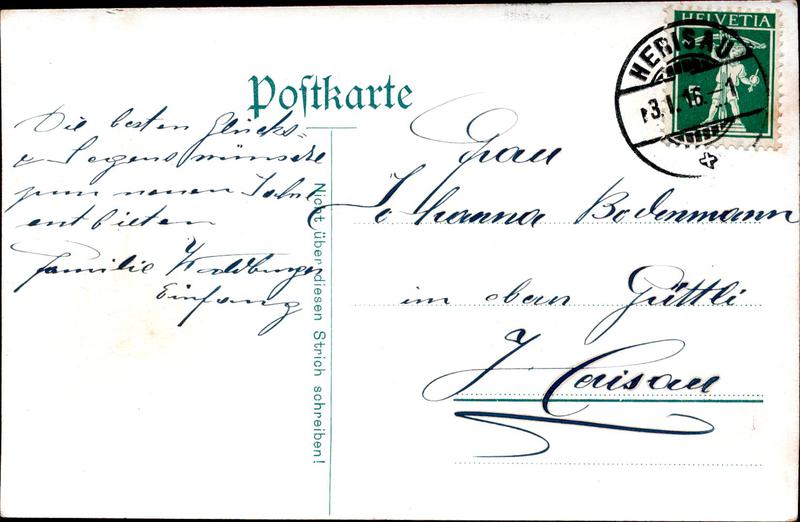 Postkarte
HELVETIA
HERISAU
3.I.16.-1
Die besten Glücks-
& Segenswünsche
zum neuen Jahre
entbieten
Familie Waldburger
Einfang
Nicht über diesen Strich schreiben!
Frau
Johanna Bodenmann
im obern Güttli
Herisau